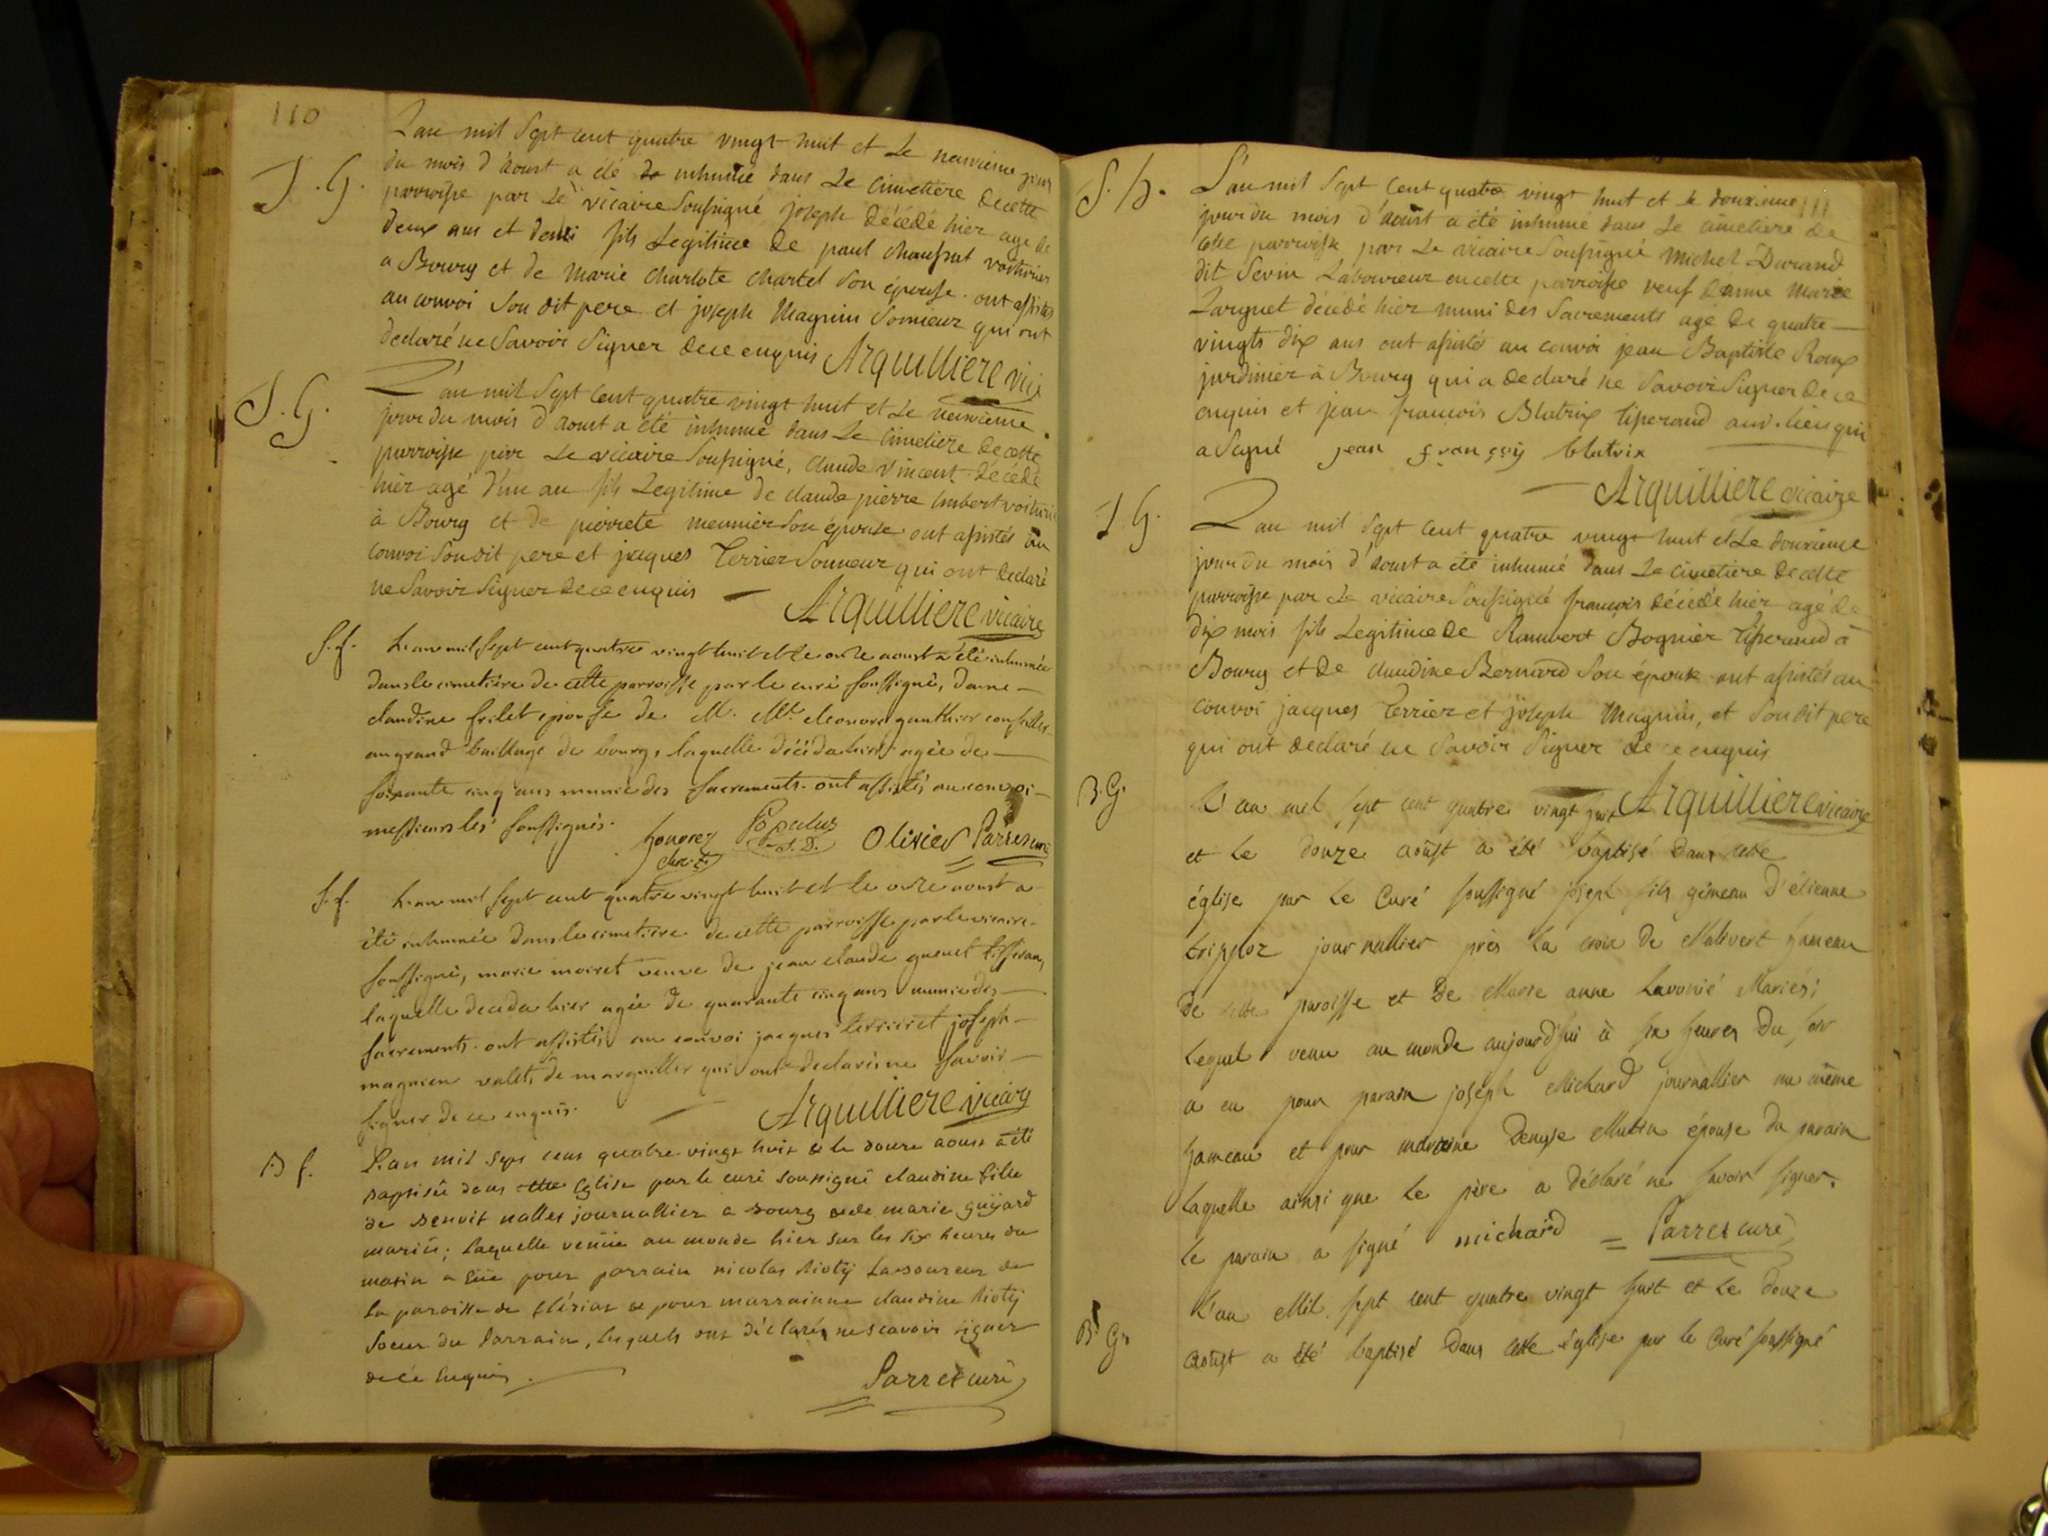 110
L'an mil Sept cent quatre vingt huit et Le neuvieme jour
du mois d'aoust a été inhumé dans Le Cimetiere de cette
S. G.
parroisse par Le vicaire Soussigné joseph décédé hier age de
deux ans et demi fils Legitime de paul chaussat voiturier
a Bourg et de Marie charlote chartel Son épouse. ont assistés
au convoi Son dit pere et joseph Magnin Sonneur qui ont
declaré ne Savoir Signer de ce enquis Arquilliere vic
S. G.
L'an mil Sept cent quatre vingt huit et Le neuvieme
jour du mois d'aoust a été inhumé dans Le Cimetiere de cette
parroisse par Le vicaire Soussigné, claude vincent décédé
hier agé d'un an fils Legitime de claude pierre imbert voiturier
à Bourg et de pierrete meunier son épouse. ont assistés au
convoi Son dit pere et jacques Terrier Sonneur qui ont declaré
ne Savoir Signer de ce enquis Arquilliere vicaire
S. f.
L'an mil Sept cent quatre vingt huit et le onze aoust a été inhumée
dans le cimetière de cette parroisse par le curé soussigné, dame
claudine frilet epouse de M. Me. eleonore gauthier conseiller
au grand bailliage de bourg, laquelle décéda hier agée de
soixante cinq ans munie des sacrements. ont assistés au convoi
messieurs les soussignés.
Populus
Olivier Parres curé
S. f.
L'an mil sept cent quatre vingt huit et le onze aoust a
été inhumée dans le cimetiere de cette parroisse par le vicaire
soussigné, marie moiret veuve de jean claude guenet tisseran,
laquelle deceda hier agée de quarante cinq ans munie des
sacrements. ont assistés au convoi jacques terrier et joseph
magnien valets de marguiller qui ont declaré ne savoir
signer de ce enquis. Arquilliere vicaire
B f.
L'an mil sept cent quatre vingt huit & le douze aoust a été
baptisée dans cette Eglise par le curé soussigné claudine fille
de Benoit nallet journallier a Bourg & de marie guyard
mariés; laquelle venüe au monde hier sur les six heures du
matin a Eüe pour parrain nicolas Rioty Laboureur de
la paroisse de & pour marrainne claudine Rioty
soeur du Parrain, lesquels ont déclarés ne scavoir signer
de ce Enquis.
Parres curé
S. h.
L'an mil Sept Cent quatre vingt huit et le douzieme
111
jour du mois d'aoust a été inhumé dans Le cimetiere de
cette parroisse par Le vicaire Soussigné Michel Durand
dit Sevin Laboureur en cette parroisse veuf d'anne Marie
Larguet décédé hier muni des Sacrements age de quatre
vingts dix ans ont assistés au convoi jean Baptiste Roux
jardinier à Bourg qui a declaré ne Savoir Signer de ce
enquis et jean francois Blatrix tisserand au d. lieu qui
a Signé jean françois blatrix
Arquilliere vicaire
S. G.
L'an mil Sept cent quatre vingt huit et Le douzieme
jour du mois d'aoust a été inhumé dans Le Cimetiere de cette
parroisse par Le vicaire Soussigné françois décédé hier agé de
dix mois fils Legitime de Rambert Bognier tisserand à
Bourg et de claudine Bernard Son épouse. ont assistés au
convoi jacques Terrier et joseph Magnin, et Son dit pere
qui ont declaré ne Savoir Signer de ce enquis
Arquilliere vicaire
B. G.
L'an mil sept cent quatre vingt huit
et Le douze aoust a été baptisé Dans cette
église par Le Curé soussigné joseph fils gémeau D'étienne
trippoz journallier près La croix de Malivert hameau
De cette paroisse et De Marie anne Lavonié Mariés;
Lequel venu au monde aujourd'hui à six heures Du soir
a eu pour parain joseph Michard journallier au même
hameau et pour maraine Denyse Mutin épouse du parain
Laquelle ainsi que Le père a déclaré ne savoir signer.
le parain a signé michard Parres curé
B G.
L'an Mil sept cent quatre vingt huit et Le Douze
aoust a été baptisé Dans cette église par le Curé soussigné